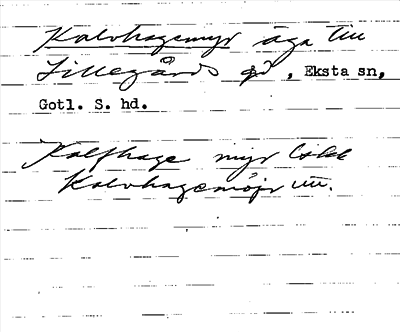 Kalvhagemyr äga till
Lillegårds gd, Eksta sn,
Gotl. S. hd.
Kalfhage myr
Kalvhagemöjr